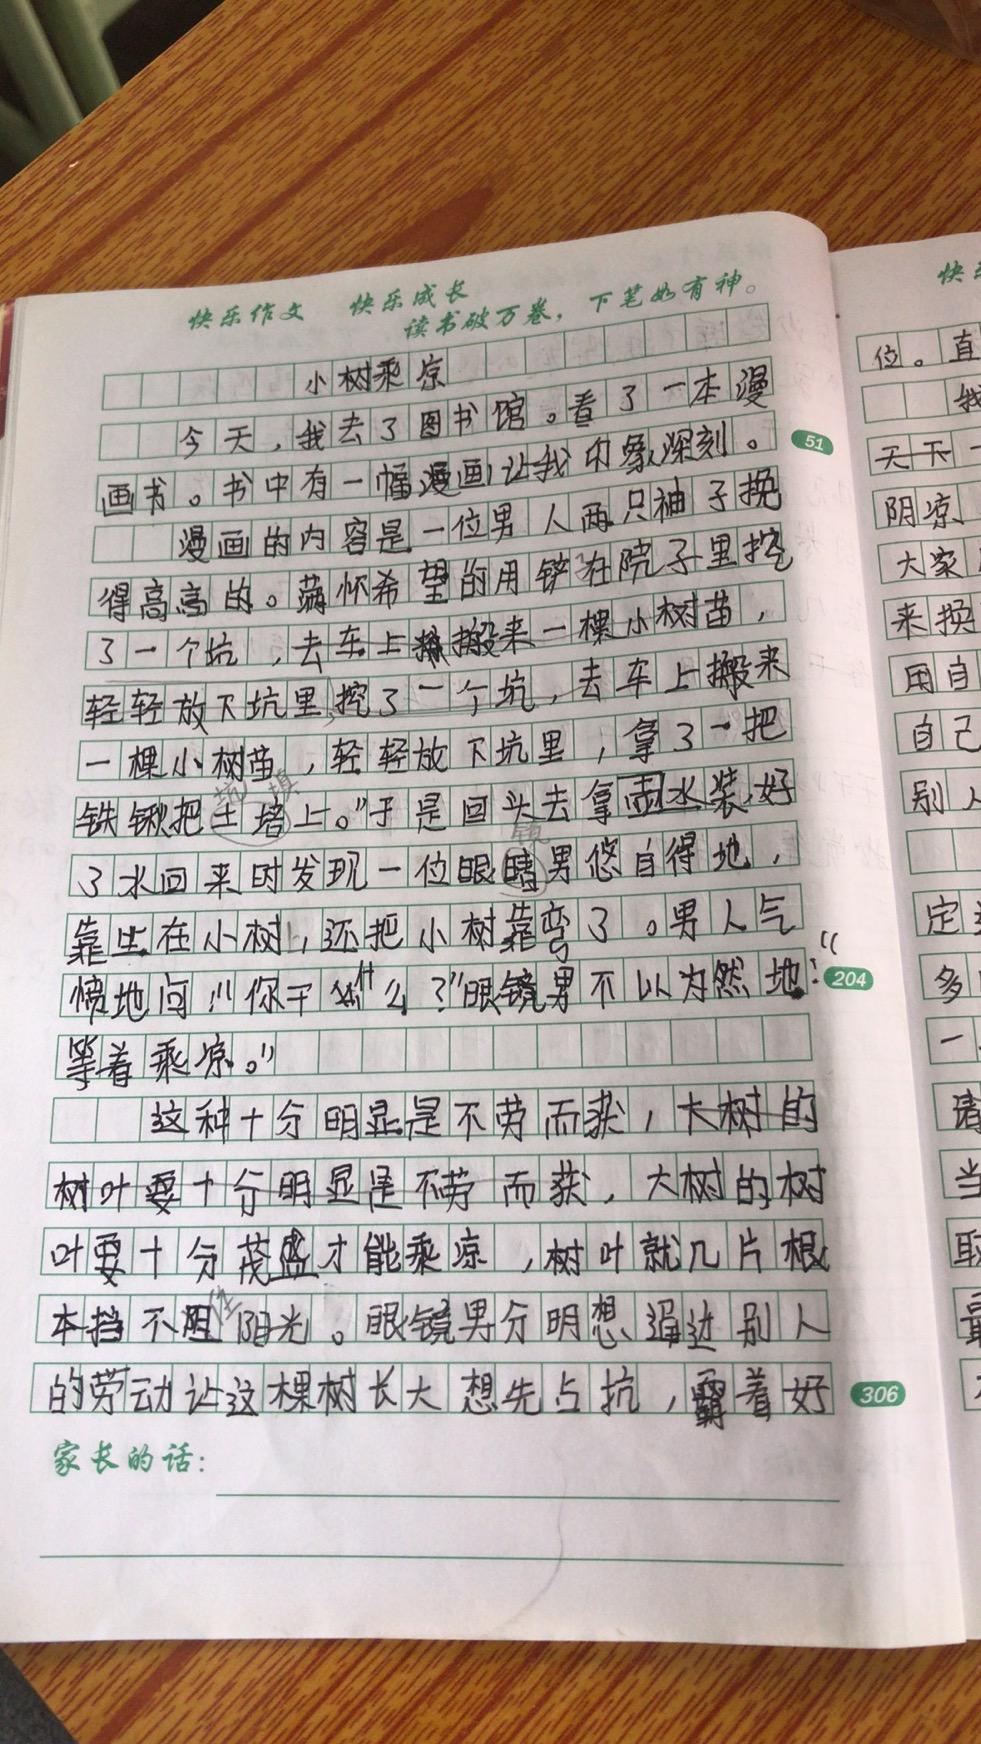 快乐作文 快乐成长
读书破万卷，下笔如有神。
小树乘凉
今天，我去了图书馆。看了一本漫
画书。书中有一幅漫画让我印象深刻。
漫画的内容是一位男人两只袖子挽
得高高的。满怀希望的用铲在院子里挖
了一个坑，去车上搬来一棵小树苗，
轻轻放下坑里，挖了一个坑，去车上搬来
一棵小树苗，轻轻放下坑里，拿了一把
铁锹把土培上。"于是回头去拿雨水装好
了水回来时发现一位眼睛男悠自得地，
靠坐在小树，还把小树靠弯了。男人气
愤地问："你干什么？"眼镜男不以为然地："
等着乘凉。"
这种十分明显是不劳而获，大树的
树叶要十分明显是不劳而获，大树的树
叶要十分茂盛才能乘凉，树叶就几片根
本挡不住阳光。眼镜男分明想通过别人
的劳动让这棵树长大想先占坑，霸着好
家长的话：
51
204
306
快
位。直
我
天下一
阴凉
大家
来换
用自
自己
别人
定
多
一
请
当
取
最